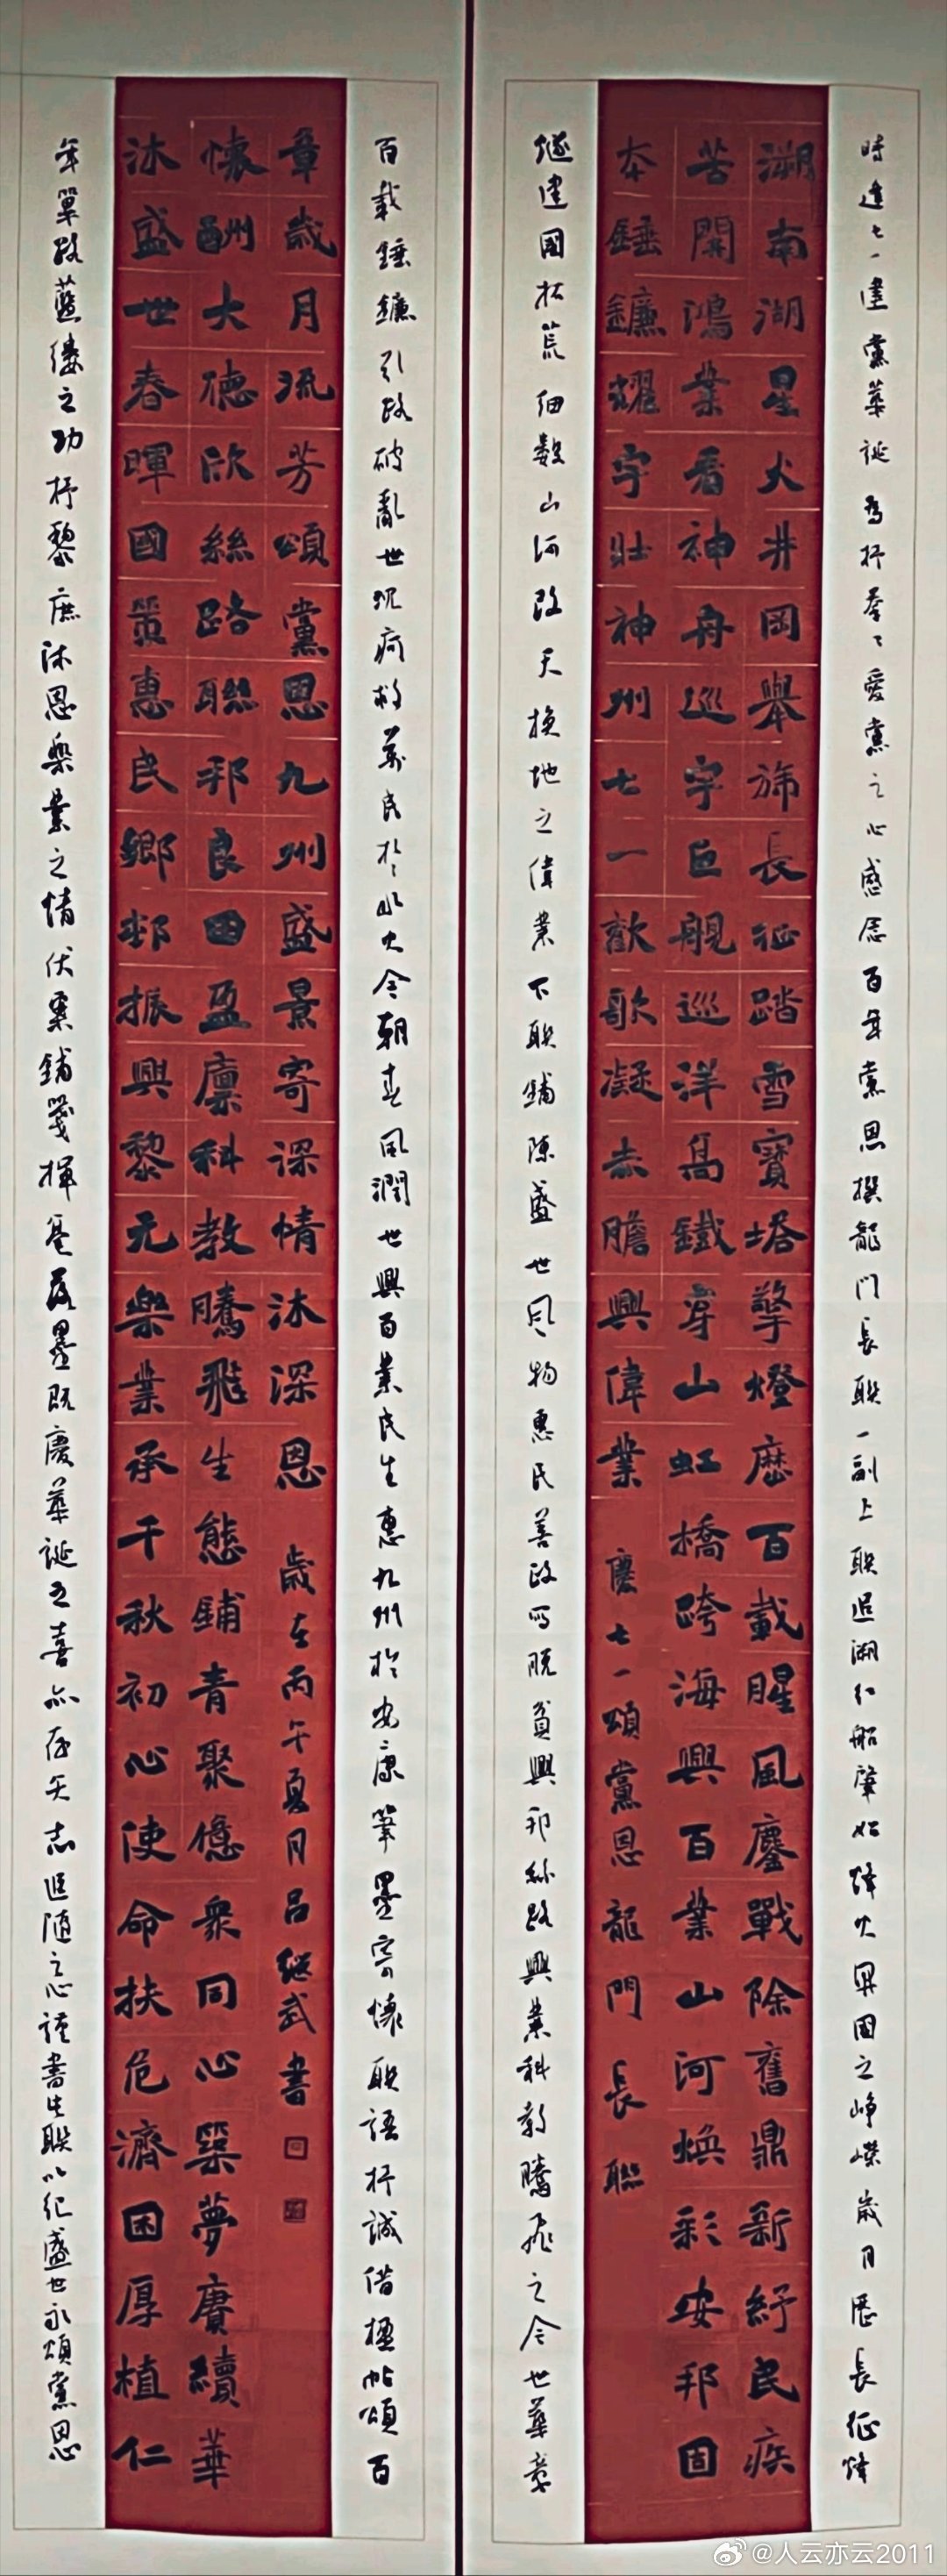 時逢七一建黨華誕為抒拳々愛黨之心感念百年黨恩撰龍門長联一副上联追溯红船肇始烽火興國之崢嶸歲月歷長征烽
溯南湖星火井岡舉旆長征踏雪寶塔擎燈歷百載腥風鏖戰除舊鼎新紓民疾
苦開鴻業看神舟巡宇巨艦巡洋高鐵穿山虹橋跨海興百業山河煥彩安邦固
本錘鐮耀宇壯神州七一歡歌凝赤膽興偉業 慶七一頌黨恩龍門長聯
燧建國拓荒细數山河改天換地之偉業下联鋪陳盛世風物惠民善政寫脱貧興邦絲路興業科教騰飛之今世華章
百載錘鐮引路破亂世沉疴救萬民於水火今朝春風潤世興百業民生惠九州於安康筆墨寄懷联語抒誠借楹帖頌百
沐盛世春暉國策惠民鄉邨振興黎元樂業承千秋初心使命扶危濟困厚植仁
懷酬大德欣絲路聯邦良田盈廩科教騰飛生態鋪青聚億衆同心築夢賡續華
章歲月流芳頌黨恩九州盛景寄深情沐深恩 歲在丙午夏月吕继武書
年篳路藍縷之功抒黎庶沐恩樂業之情伏案鋪箋揮毫落墨既慶華誕之喜亦存矢志追隨之心謹書此联以紀盛世永頌黨恩
@人云亦云2011